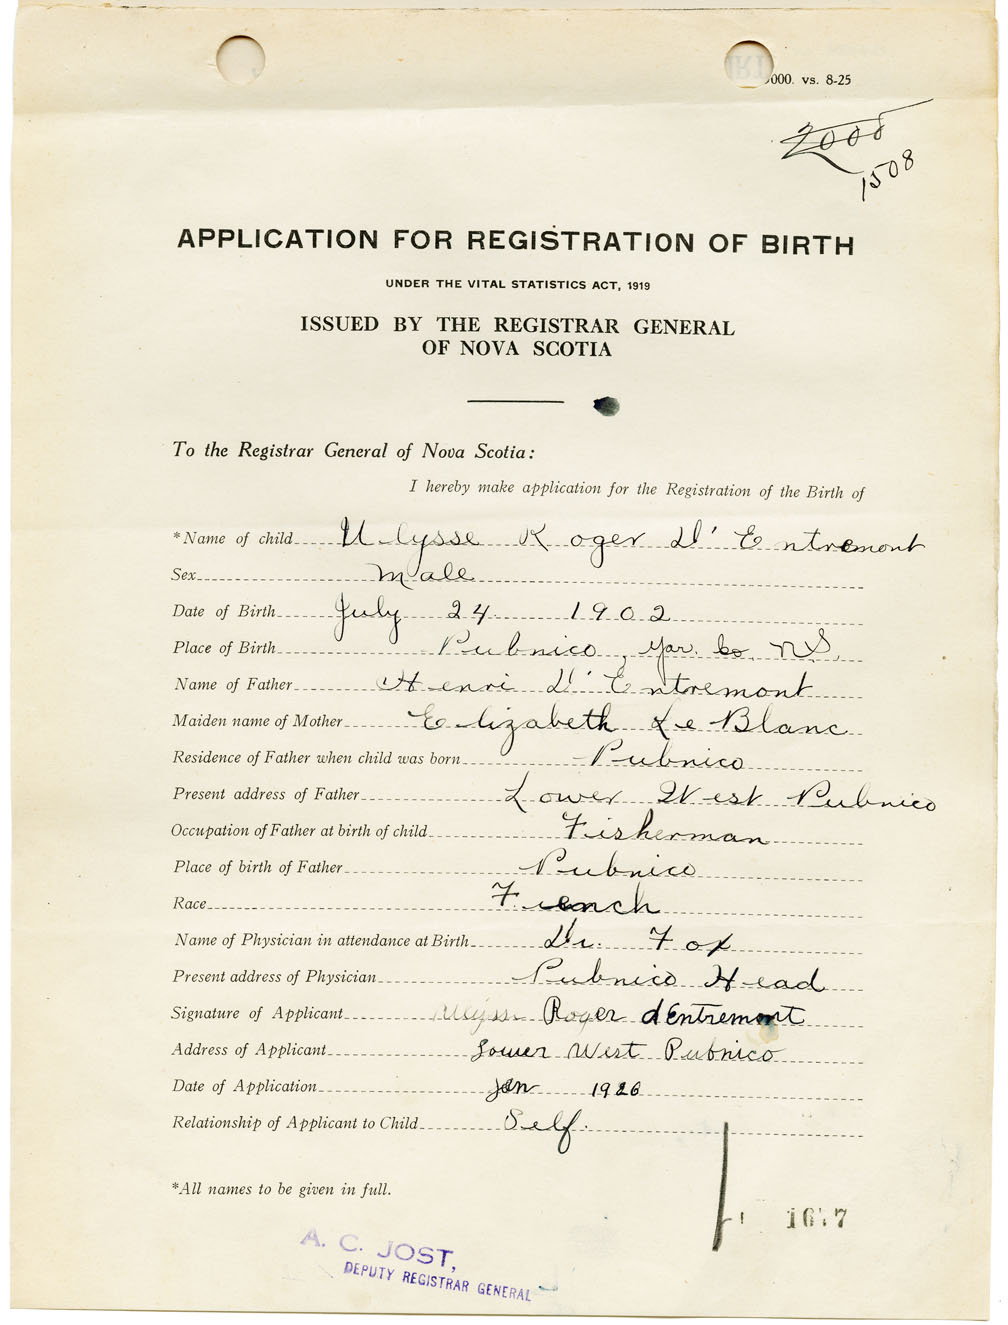 000. vs. 8-25
2000
1508
APPLICATION FOR REGISTRATION OF BIRTH
UNDER THE VITAL STATISTICS ACT, 1919
ISSUED BY THE REGISTRAR GENERAL
OF NOVA SCOTIA
To the Registrar General of Nova Scotia:
I hereby make application for the Registration of the Birth of
*Name of child Ulysse Roger D'Entremont
Sex Male
Date of Birth July 24 1902
Place of Birth Pubnico, Yar. Co. N.S.
Name of Father Henri D'Entremont
Maiden name of Mother Elizabeth Le Blanc
Residence of Father when child was born Pubnico
Present address of Father Lower West Pubnico
Occupation of Father at birth of child Fisherman
Place of birth of Father Pubnico
Race French
Name of Physician in attendance at Birth Dr. Fox
Present address of Physician Pubnico Head
Signature of Applicant Ulysse Roger dEntremont
Address of Applicant Lower West Pubnico
Date of Application Jan 1926
Relationship of Applicant to Child Self.
*All names to be given in full.
A. C. JOST,
DEPUTY REGISTRAR GENERAL